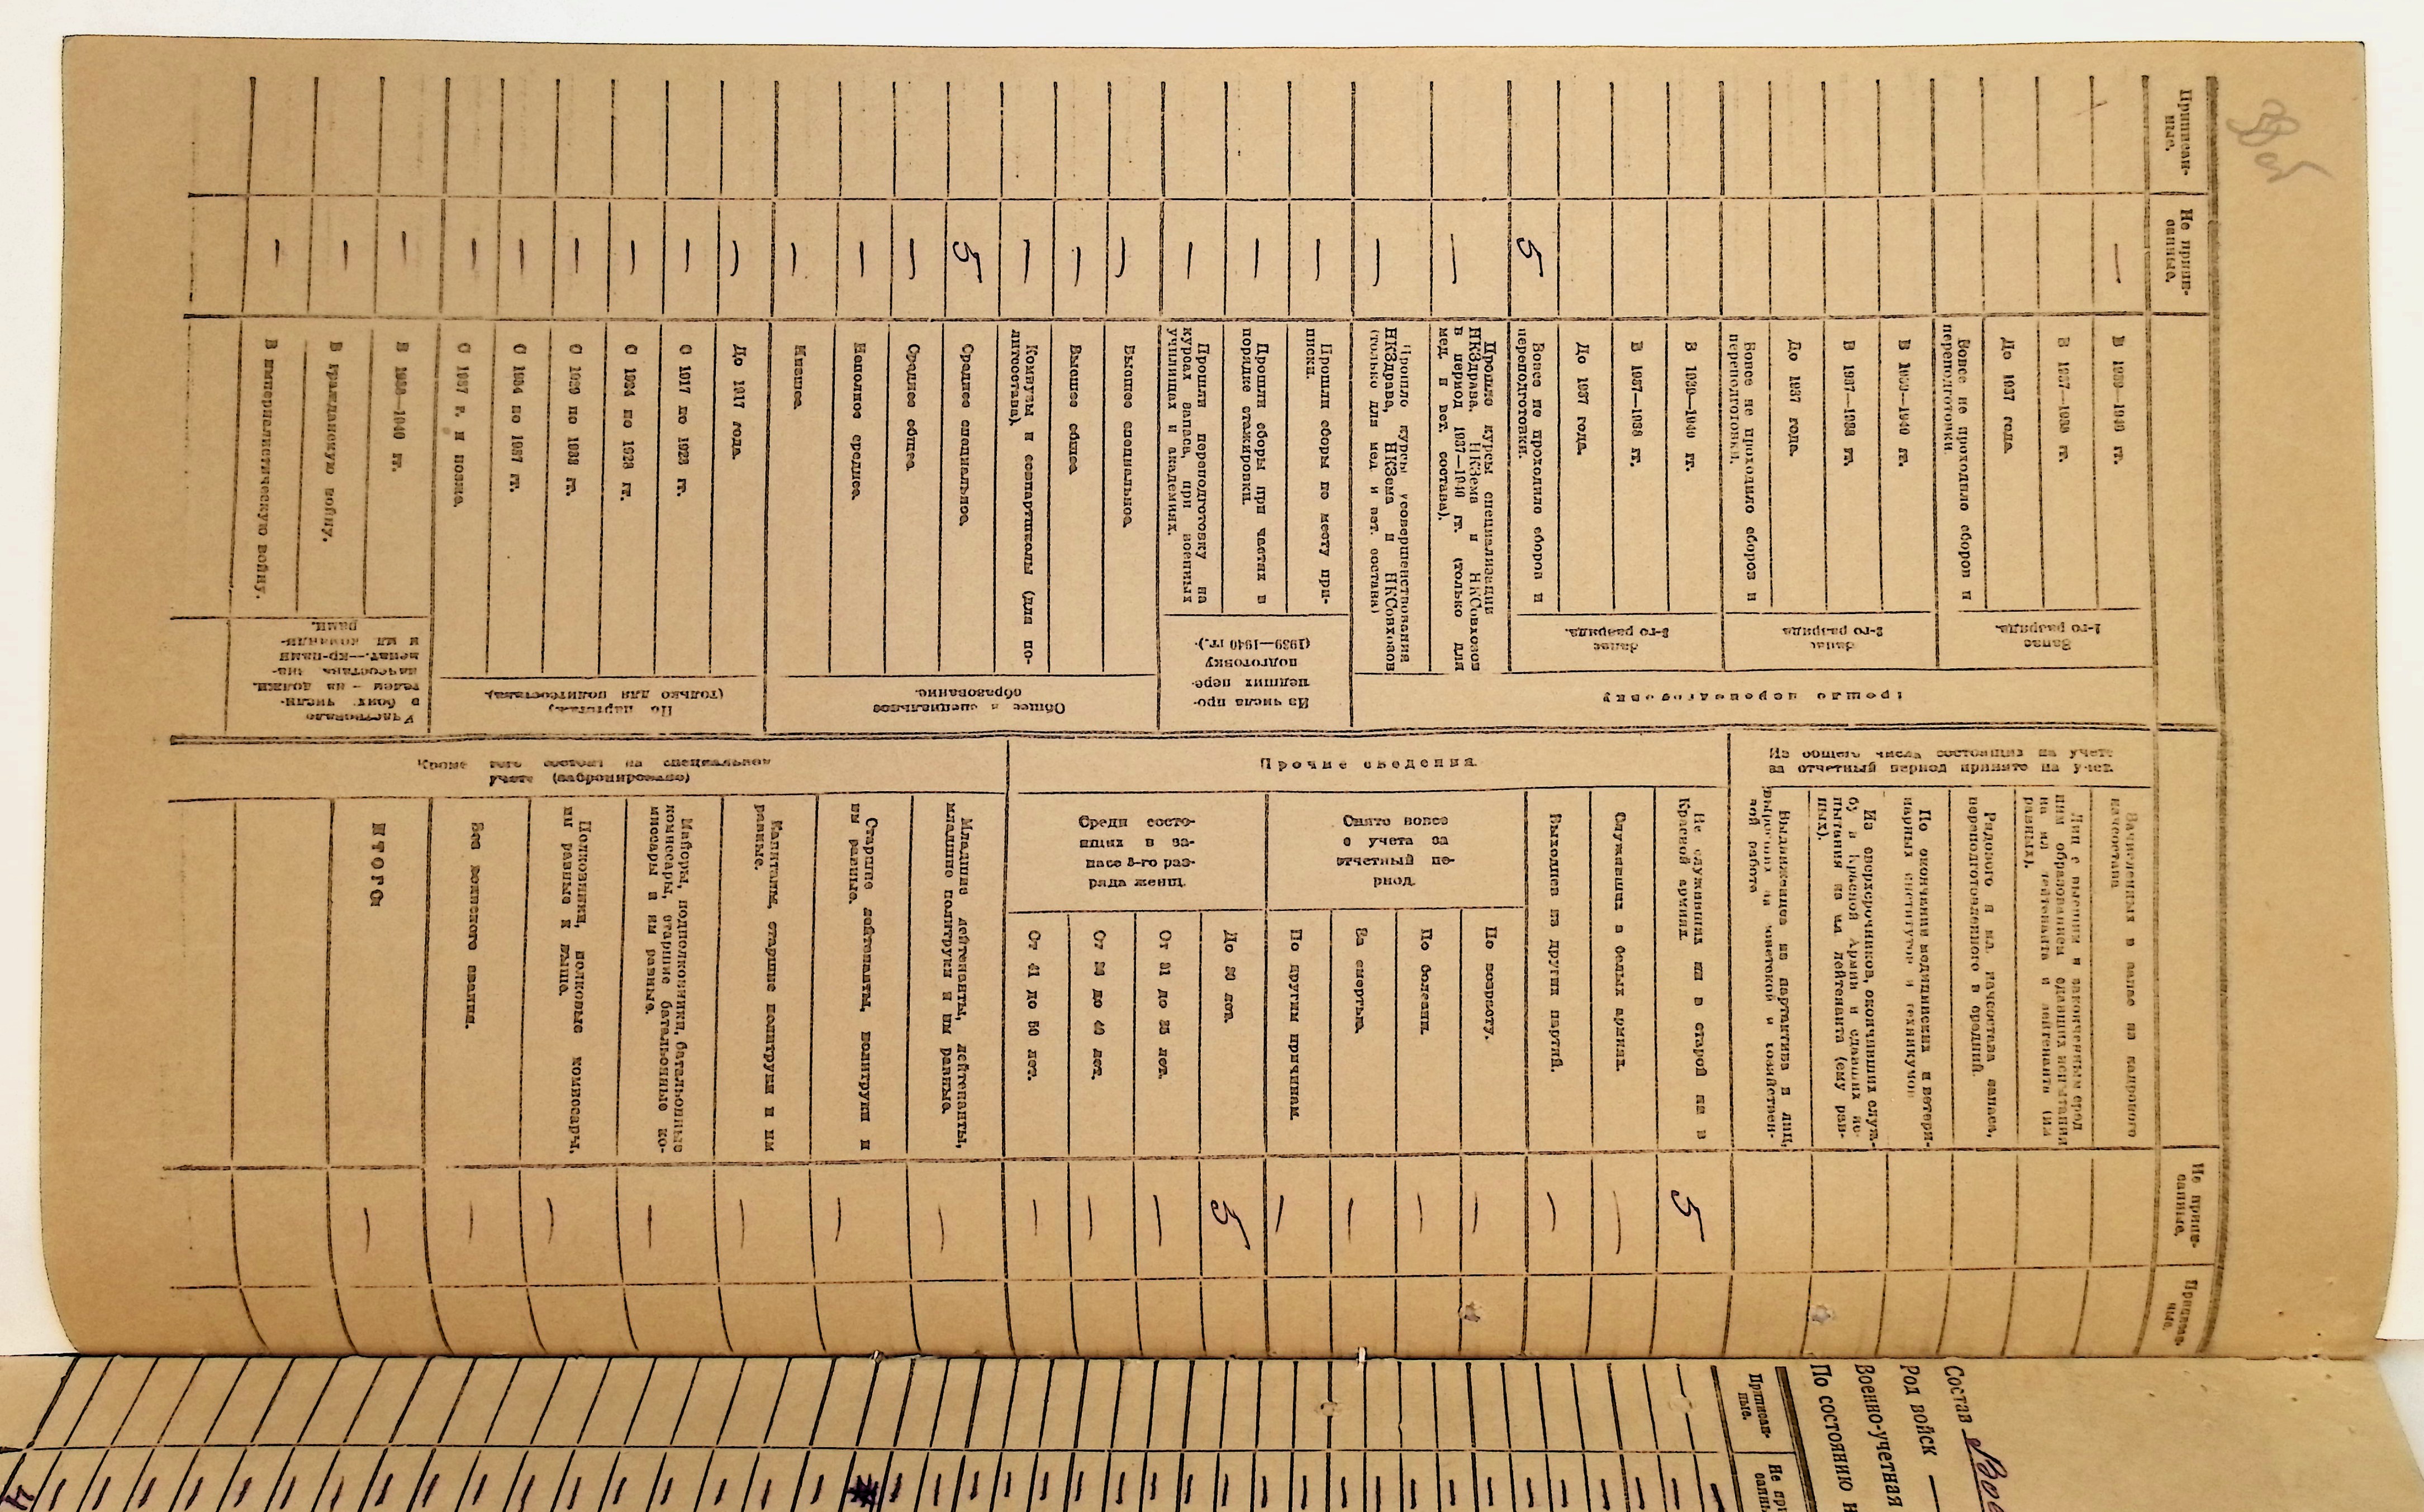 Приписан-
ные.
Не припи-
санные.
Запас
1-го разряда.
В 1939—1940 гг.
—
В 1937—1938 гг.
До 1937 года.
Вовсе не проходило сборов и
переподготовки.
Запас
2-го разряда
В 1939—1940 гг.
В 1937—1938 гг.
До 1937 года.
Вовсе не проходило сборов и
переподготовки.
Запас
3-го разряда.
В 1939—1940 гг.
В 1937—1938 гг.
До 1937 года.
Вовсе не проходило сборов и
переподготовки.
5
Прошло переподготовку
Прошло курсы специализации
НКЗдрава, НКЗема и НКСовхозов
в период 1937—1940 гг. (только для
мед. и вет. состава).
—
Прошло курсы усовершенствования
НКЗдрава, НКЗема и НКСовхозов
(только для мед и вет. состава)
—
Из числа про-
шедших пере-
подготовку
(1939—1940 гг.).
Прошли сборы по месту при-
писки.
—
Прошли сборы при частях в
порядке стажировки.
—
Прошли переподготовку на
курсах запаса, при военных
училищах и академиях.
—
Общее и специальное
образование.
Высшее специальное.
—
Высшее общее.
—
Комвузы и совпартшколы (для по-
литсостава).
—
Среднее специальное.
5
Среднее общее.
—
Неполное среднее.
—
Низшее.
—
По партстажу
(только для политсостава).
До 1917 года.
—
С 1917 по 1923 гг.
—
С 1924 по 1928 гг.
—
С 1929 по 1933 гг.
—
С 1934 по 1937 гг.
—
С 1937 г. и позже.
—
Участвовало
в боях: числи-
телем — на должн.
начсостава, зна-
менат.—кр-цами
и мл командм-
рами.
В 1938—1940 гг.
—
В гражданскую войну.
—
В империалистическую войну.
—
Из общего числа состоящих на учете
за отчетный период принято на учет.
Зачисленных в запас из кадрового
начсостава
Лиц с высшим и законченным сред
ним образованием сдавших испытания
на мл лейтенанта и лейтенанта (им
равных).
Рядового и мл. начсостава запаса,
переподготовленного в средний.
По окончании медицинских и ветери-
нарных институтов и техникумов
Из сверхсрочников, окончивших служ-
бу в Красной Армии и сдавших ис-
пытания на мл лейтенанта (ему рав-
ных).
Выдвиженцев из партактива и лиц,
выросших на советской и хозяйствен-
ной работе
Прочие сведения.
Не служивших ни в старой ни в
Красной армиях.
5
Служивших в белых армиях.
—
Выходцев из других партий.
—
Снято вовсе
с учета за
отчетный пе-
риод.
По возрасту.
—
По болезни.
—
За смертью.
—
По другим причинам.
—
Среди состо-
ящих в за-
пасе 3-го раз-
ряда женщ.
До 30 лет.
5
От 31 до 35 лет.
—
От 36 до 40 лет.
—
От 41 до 50 лет.
—
Кроме того состоит на специальном
учете (забронировано)
Младшие лейтенанты, лейтенанты,
младшие политруки и им равные.
—
Старшие лейтенанты, политруки и
им равные.
—
Капитаны, старшие политруки и им
равные.
—
Майоры, подполковники, батальонные
комиссары, старшие батальонные ко-
миссары и им равные.
—
Полковники, полковые комиссары,
им равные и выше.
—
Без воинского звания.
—
ИТОГО
—
Не припи-
санные.
Приписан-
ные.
Состав
Род войск —
Военно-учетная
По состоянию н
Приписан-
ные.
Не при
санны